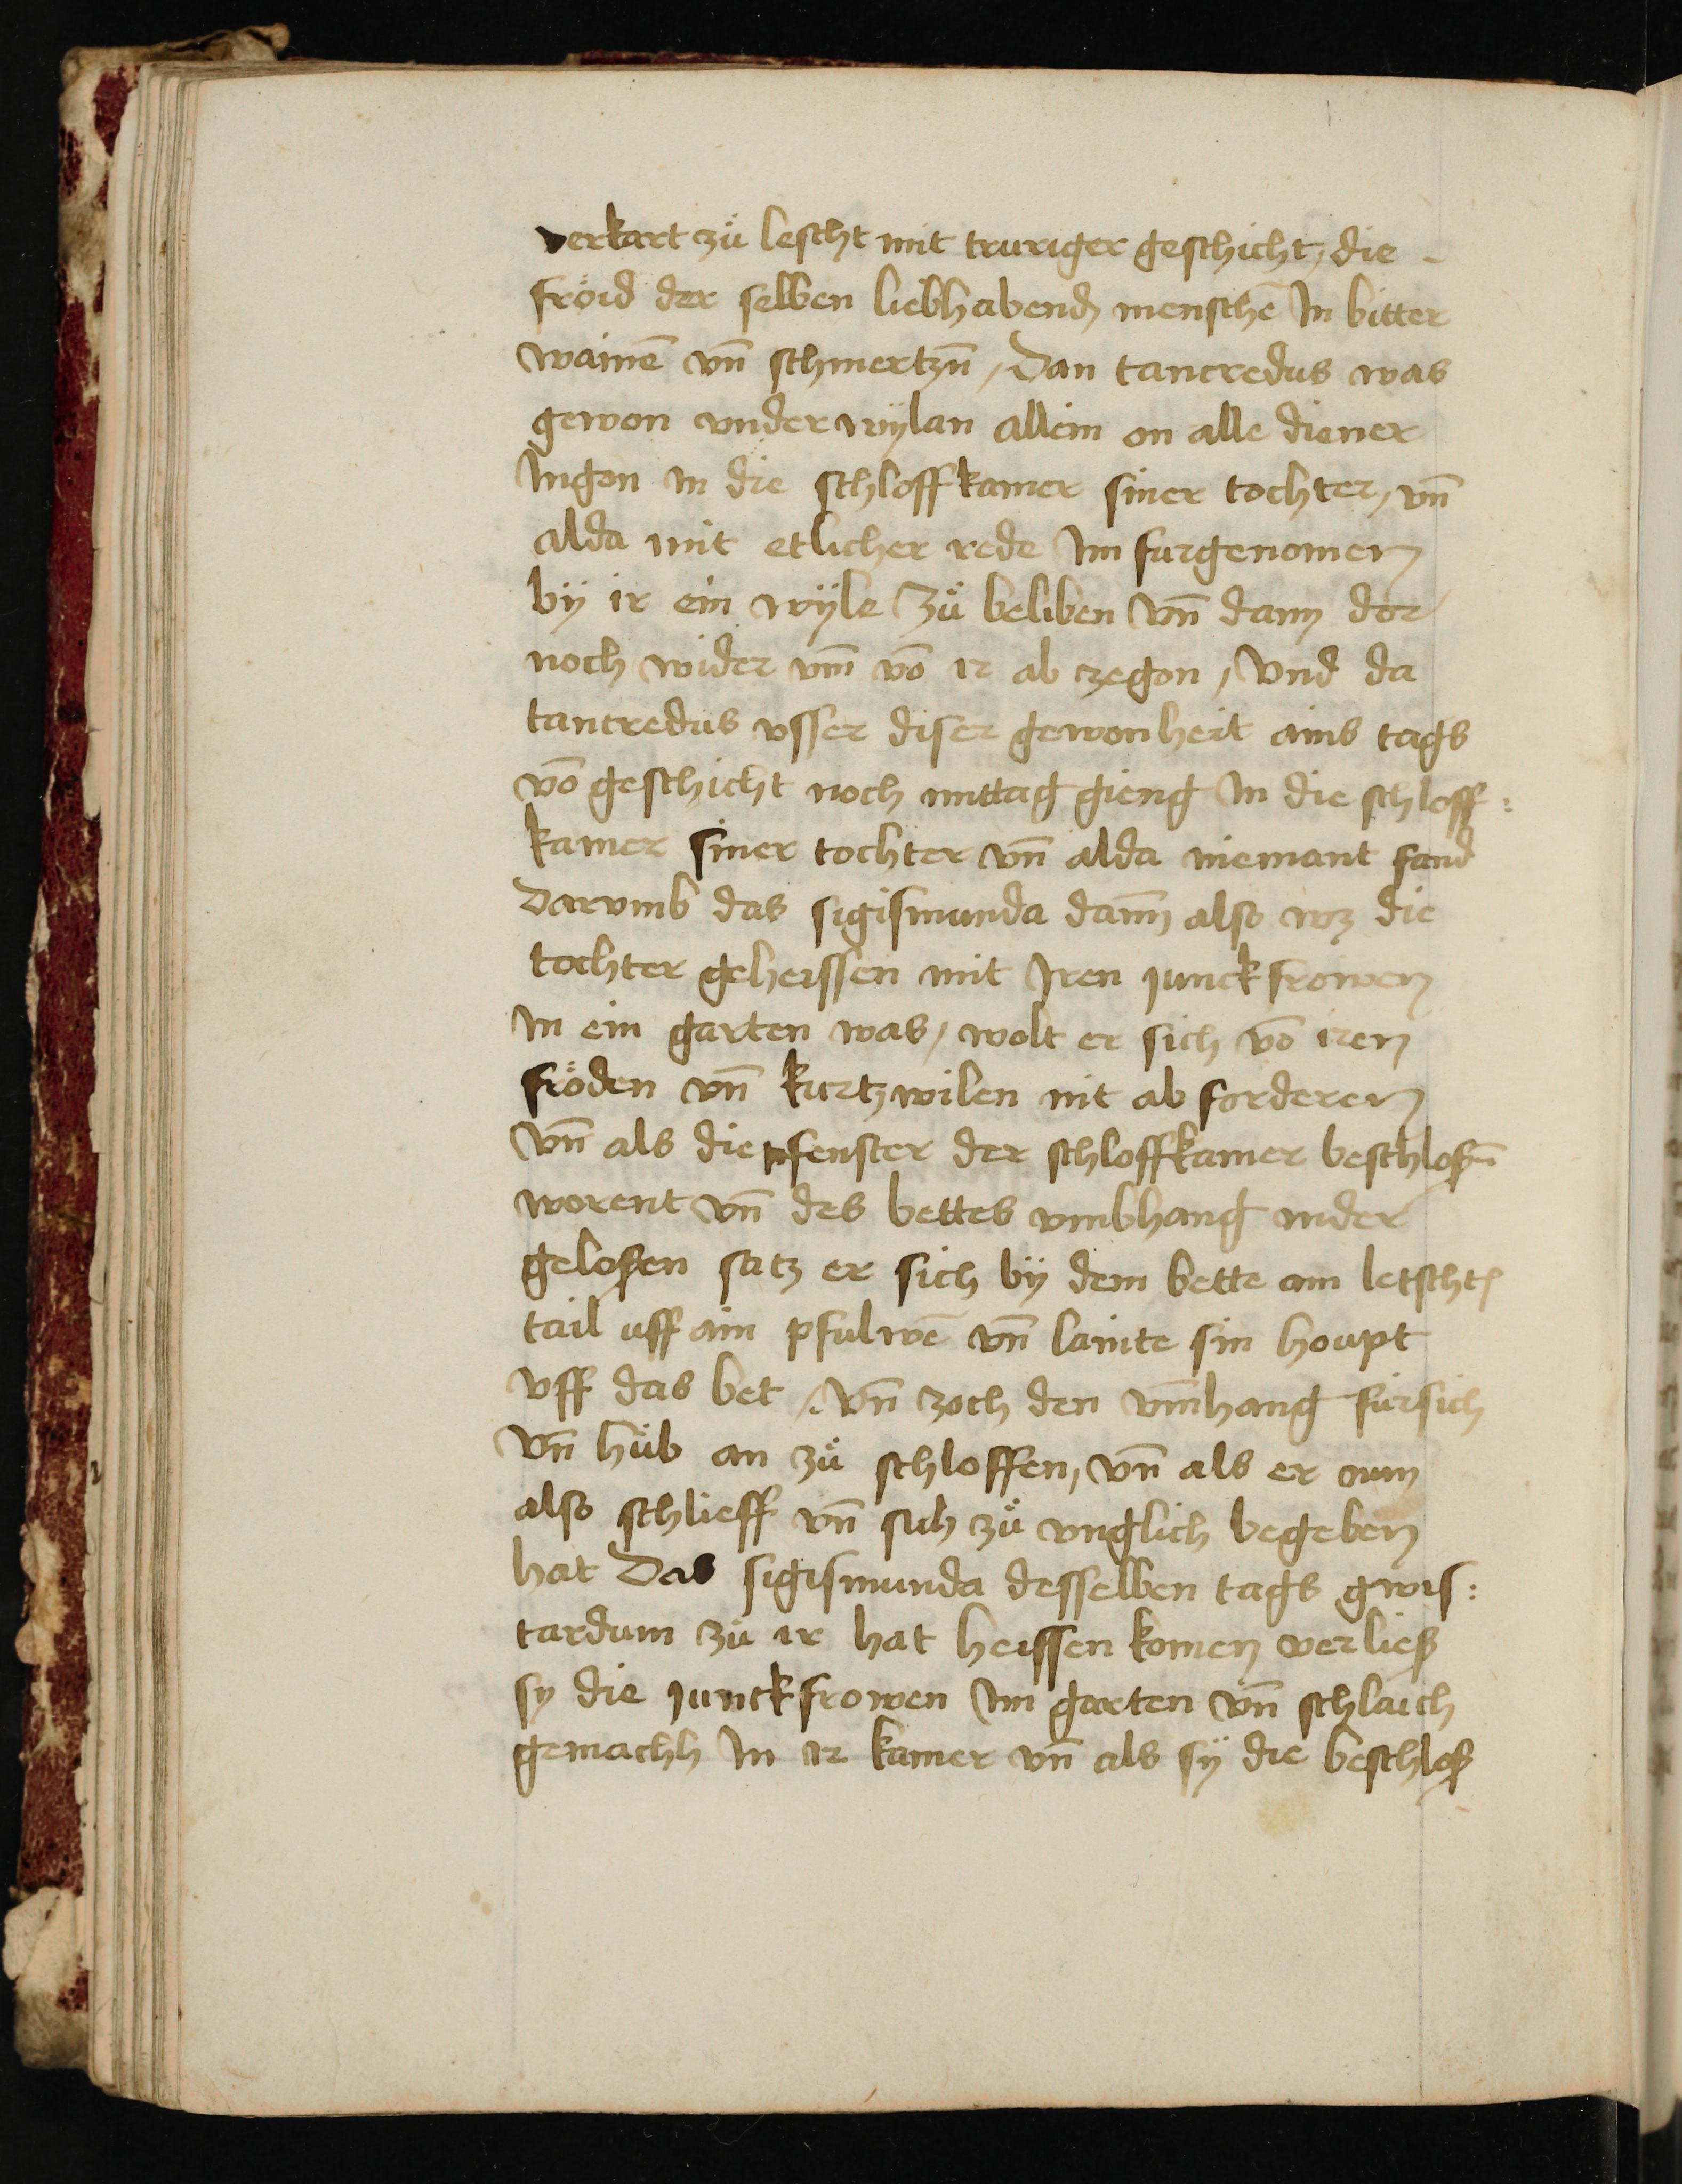 verkart zů lescht mit truriger geschicht, die
fröid der selben liebhabend menschē In bitter
wainē vn̄ schmertzn̄ / Dan tancredus was
gewon vnder wÿlan allein on alle diener
Ingon in die schloffkamer siner tochter / vn̄
alda mit etlicher rede Im furgenomen
bÿ ir ein wÿle zů beliben vn̄ dann dor
noch wider vm̄ vō ir ab zegon / Vnd da
tancredus vsser diser gewonheit ains tags
vō geschicht noch mittag gieng In die schloff:
kamer siner tochter vn̄ alda niemant fand
Darvmb das sigismunda dann also wz die
tochter geheissen mit Iren junckfrowen
In ein garten was / wolt er sich vō iren
fröden vn̄ kurtzwilen nit ab forderen
vn̄ als die fenster der schloffkamer beschloßn̄
worent vn̄ des bettes vmbhang nider
geloßen satz er sich bÿ dem bette am letscht
tail uff ain pfulwē vn̄ lainte sin houpt
vff das bet / vn̄ zoch den vm̄hang für sich
vn̄ hůb an zů schloffen, vn̄ als er nun
also schlieff vn̄ sich zů vnglich begeben
hat Das sigismunda desselben tags gwis:
tardum zů ir hat heissen komen verließ
sy die junckfrowen Im garten vn̄ schlaich
gemachh In ir kamer vn̄ als sÿ die beschloß